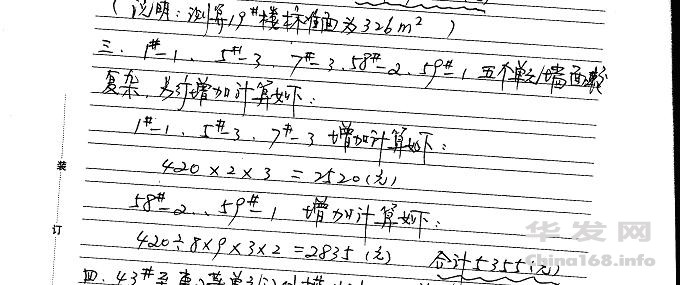 (说明:测算19#楼标准面为326m²)
三、1#-1、5#-3、7#-3、58#-2、59#-1五个单元墙面较
复杂,另行增加计算如下:
1#-1、5#-3、7#-3增加计算如下:
420×2×3=2520(元)
58#-2、59#-1增加计算如下:
420÷8×9×3×2=2835(元) 合计5355(元)
四、43#至
装
订
华发网
China168.info